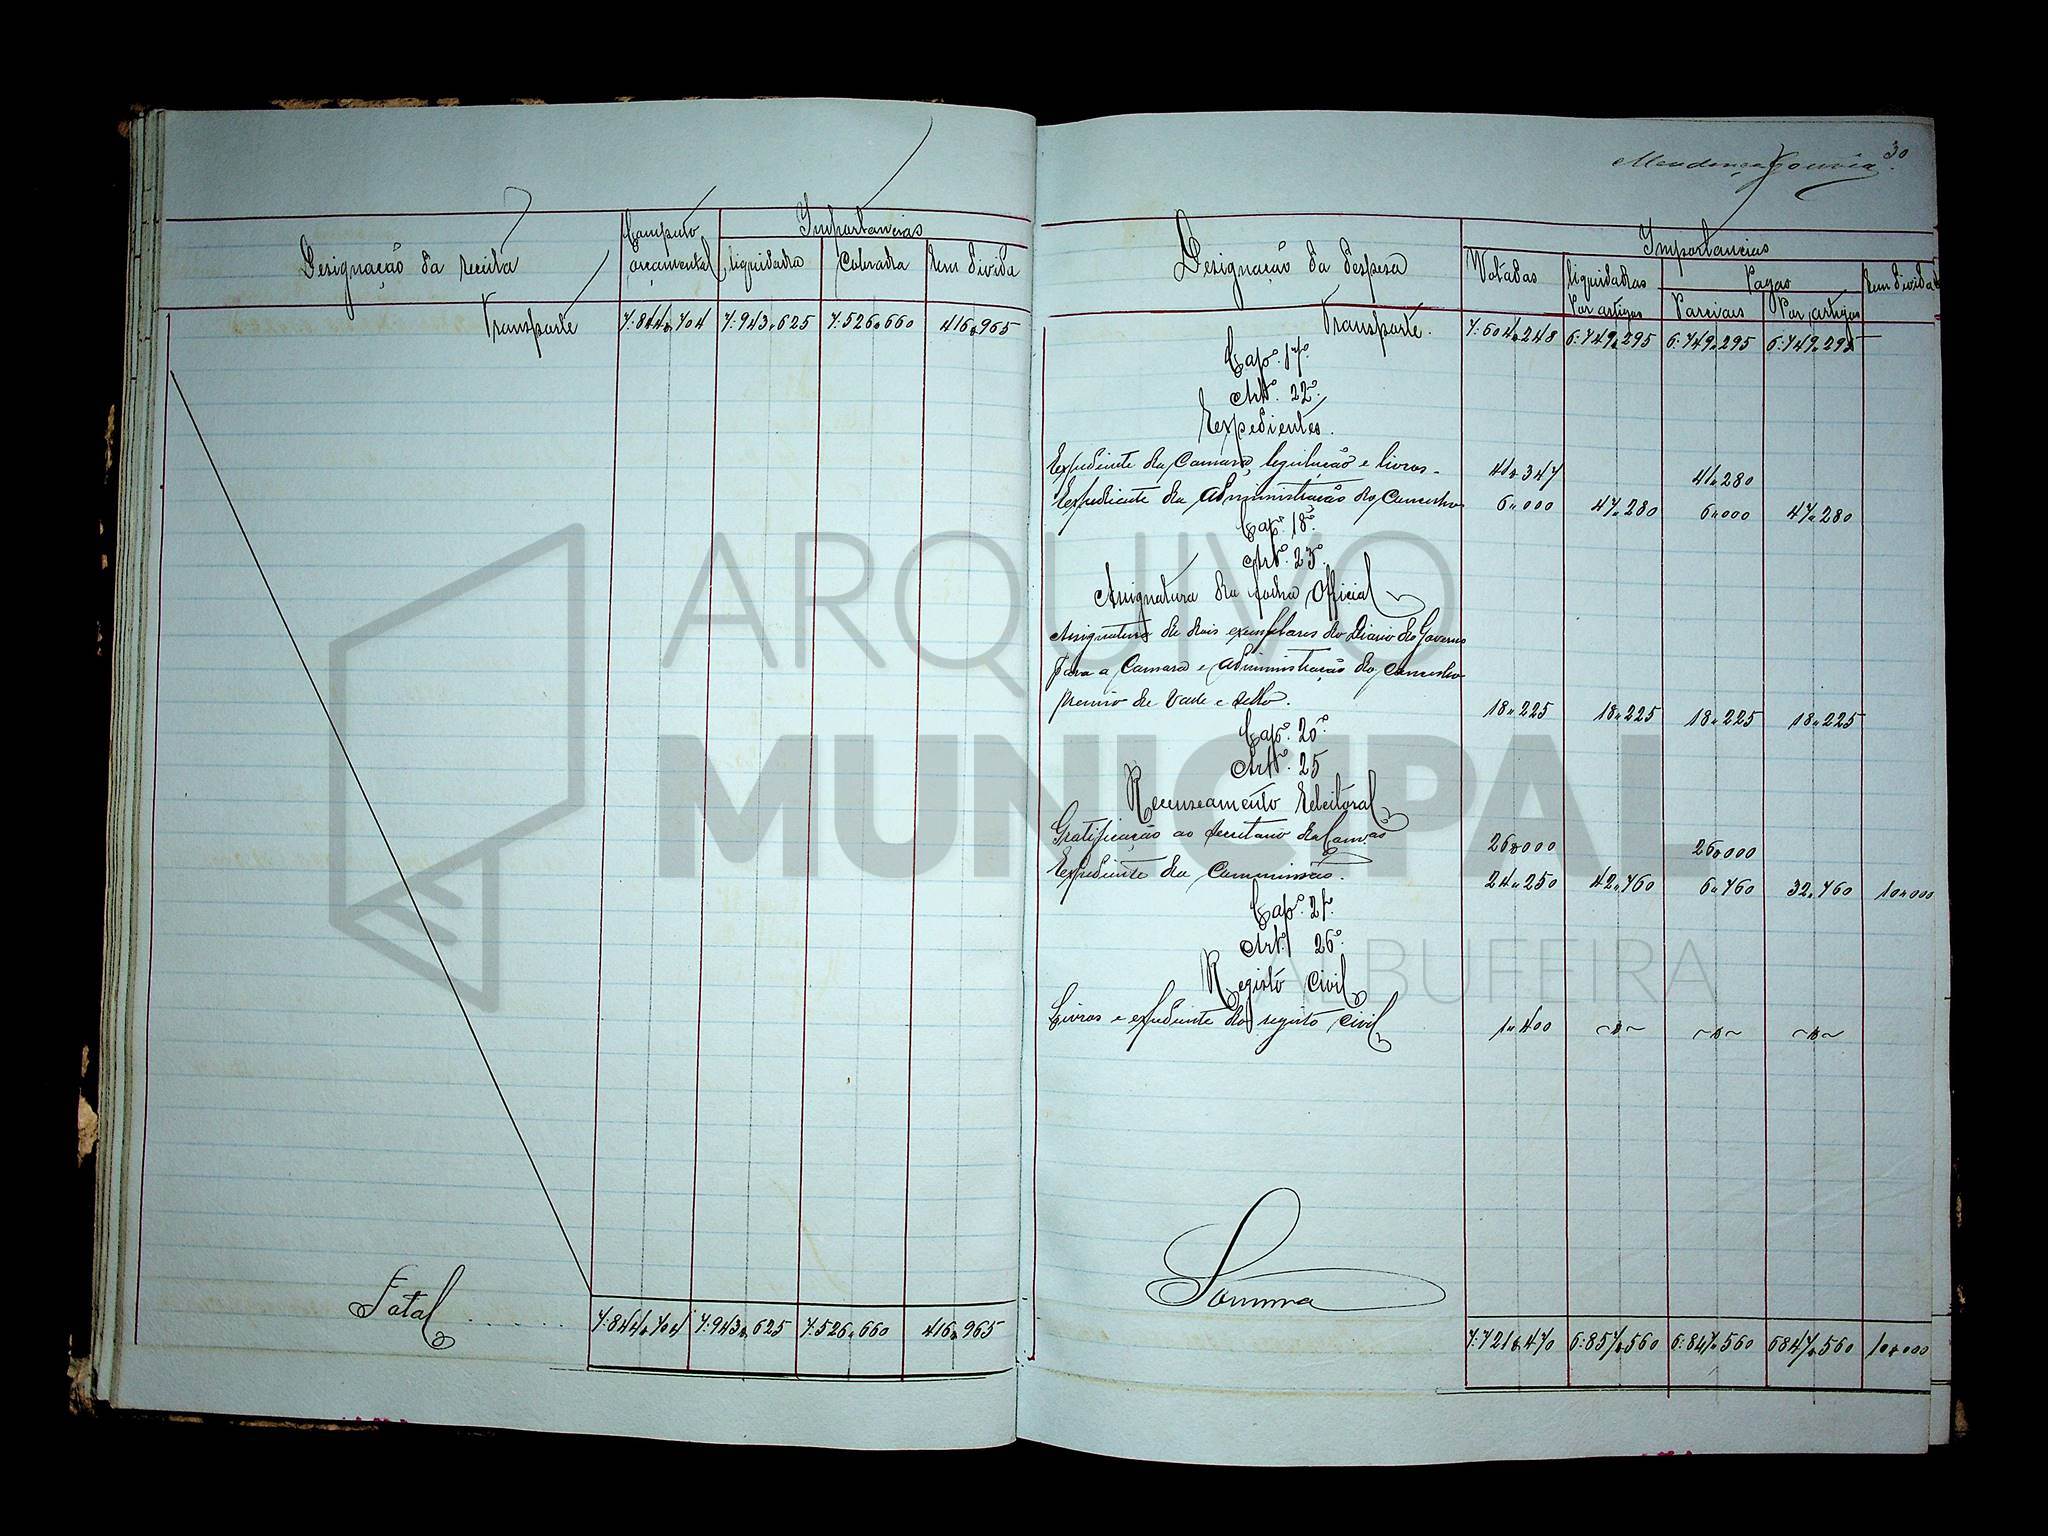 30
Mendonça Gouvêa.
Designação da receita
Computo orçamental
Importancias
liquidada
Cobrada
Em divida
Transporte 7:844,704 7:943,625 7:526,660 416,965
Total . . . . . . 7:844,704 7:943,625 7:526,660 416,965
Designação da despesa
Importancias
Votadas
liquidadas
Por artigos
Pagas
Parciais
Por artigos
Em divida
Transporte. 7:604,248 6:749,295 6:749,295 6:749,295
Capº. 17º.
Artº. 22º.
Expedientes.
Expediente da Camara, legislação e livros. 41,347 41,280
Expediente da Administração do Concelho 6,000 47,280 6,000 47,280
Capº. 18º.
Artº. 23º.
Assignatura da folha Official
Assignatura de dois exemplares do Diario do Governo
para a Camara e Administração do Concelho
premio de vale e sello. 18,225 18,225 18,225 18,225
Capº. 20º.
Artº. 25
Recenseamento Eleitoral
Gratificação ao Secretario da Camªo 26,000 26,000
Expediente da Commissão. 24,250 42,760 6,760 32,760 10,000
Capº. 21º.
Artº. 26º.
Registo Civil
Livros e expediente do registo civil 1,400 ~,~ ~,~ ~,~
Somma 7:721,470 6:857,560 6:847,560 6847,560 10,000
ARQUIVO
MUNICIPAL
ALBUFEIRA